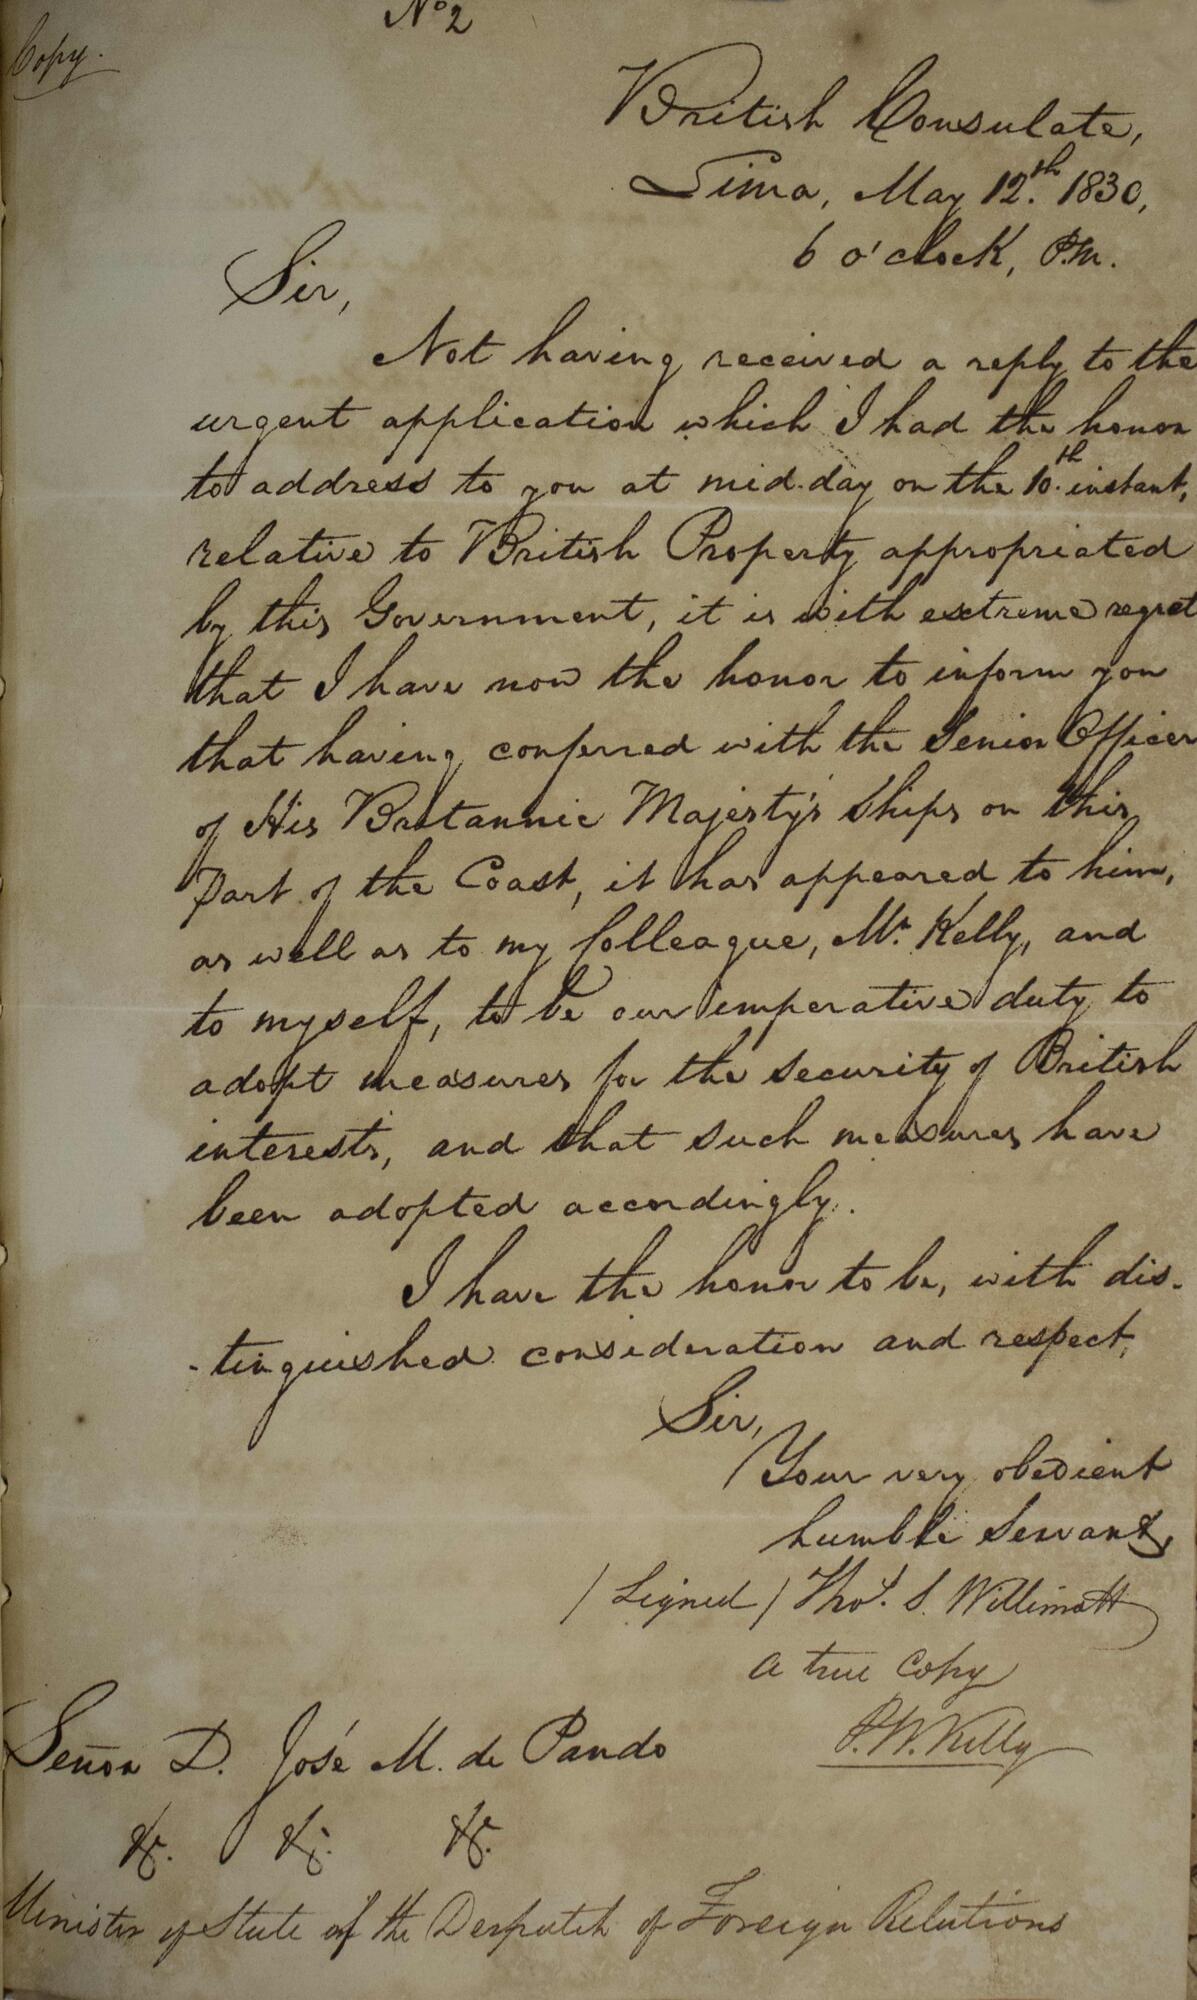 No 2
Copy.
British Consulate,
Lima, May 12.th 1830,
6 o'clock, P.M.
Sir,
Not having received a reply to the
urgent application which I had the honor
to address to you at mid-day on the 10.th instant,
relative to British Property appropriated
by this Government, it is with extreme regret
that I have now the honor to inform you
that having conferred with the Senior Officer
of His Britannic Majesty's Ships on this
Part of the Coast, it has appeared to him,
as well as to my Colleague, Mr. Kelly, and
to myself, to be our imperative duty to
adopt measures for the security of British
interests, and that such measures have
been adopted accordingly.
I have the honor to be, with dis-
-tinguished consideration and respect,
Sir,
Your very obedient
humble Servant,
/Signed/ Thos. S. Willimott
a true Copy
P.W. Kelly
Señor D. José M. de Pando
&c. &c. &c.
Minister of State of the Despatch of Foreign Relations